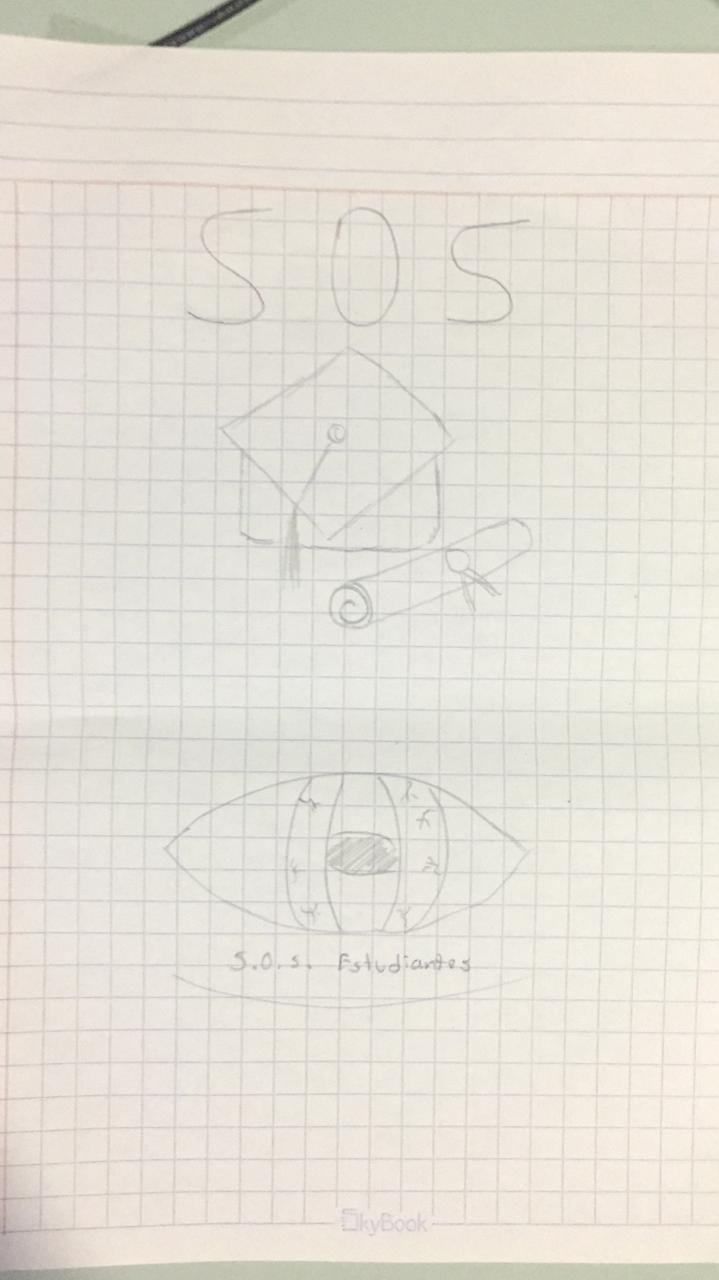 SOS
S.O.S. Estudiantes
SkyBook